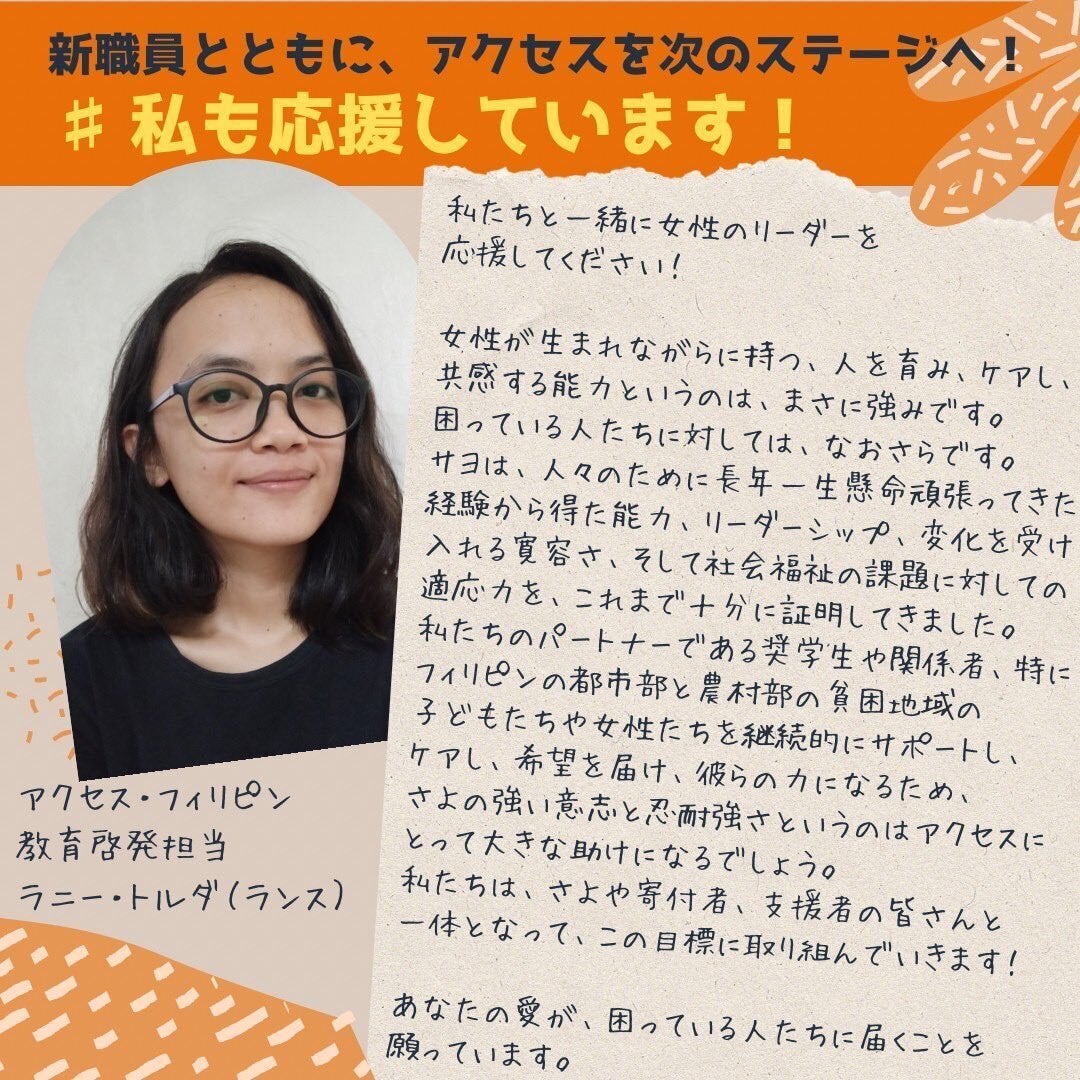 新職員とともに、アクセスを次のステージへ！
＃私も応援しています！
私たちと一緒に女性のリーダーを
応援してください！
女性が生まれながらに持つ、人を育み、ケアし、
共感する能力というのは、まさに強みです。
困っている人たちに対しては、なおさらです。
サヨは、人々のために長年一生懸命頑張ってきた
経験から得た能力、リーダーシップ、変化を受け
入れる寛容さ、そして社会福祉の課題に対しての
適応力を、これまで十分に証明してきました。
私たちのパートナーである奨学生や関係者、特に
フィリピンの都市部と農村部の貧困地域の
子どもたちや女性たちを継続的にサポートし、
ケアし、希望を届け、彼らの力になるため、
さよの強い意志と忍耐強さというのはアクセスに
とって大きな助けになるでしょう。
私たちは、さよや寄付者、支援者の皆さんと
一体となって、この目標に取り組んでいきます！
あなたの愛が、困っている人たちに届くことを
願っています。
アクセス・フィリピン
教育啓発担当
ラニー・トルダ（ランス）